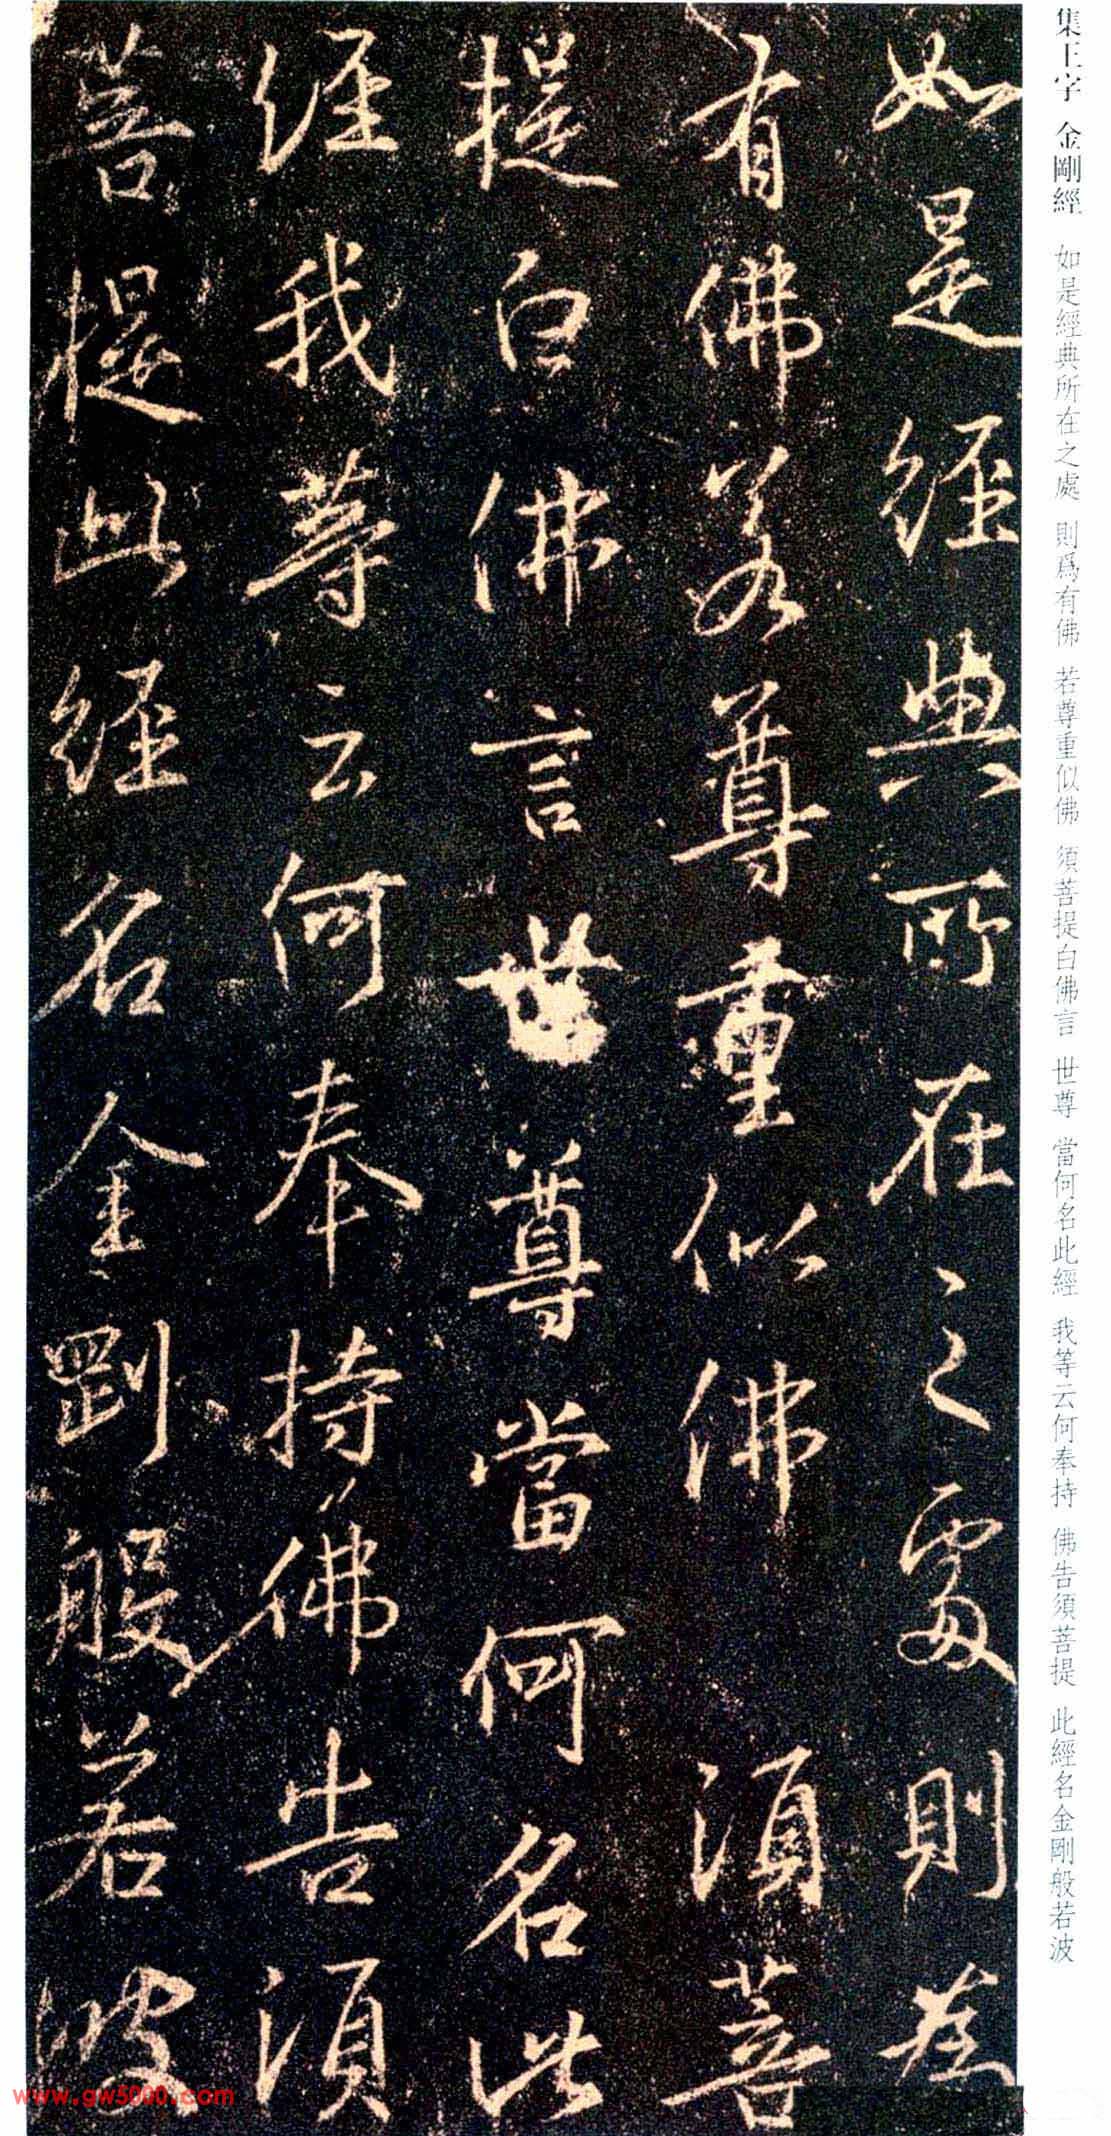 集王字 金剛經 如是經典所在之處 則爲有佛 若尊重似佛 須菩提白佛言 世尊 當何名此經 我等云何奉持 佛告須菩提 此經名金剛般若波
如是經典所在之處則為
有佛若尊重似佛 須菩
提白佛言世尊當何名此
經我等云何奉持佛告須
菩提此經名金剛般若波
www.gw5000.com